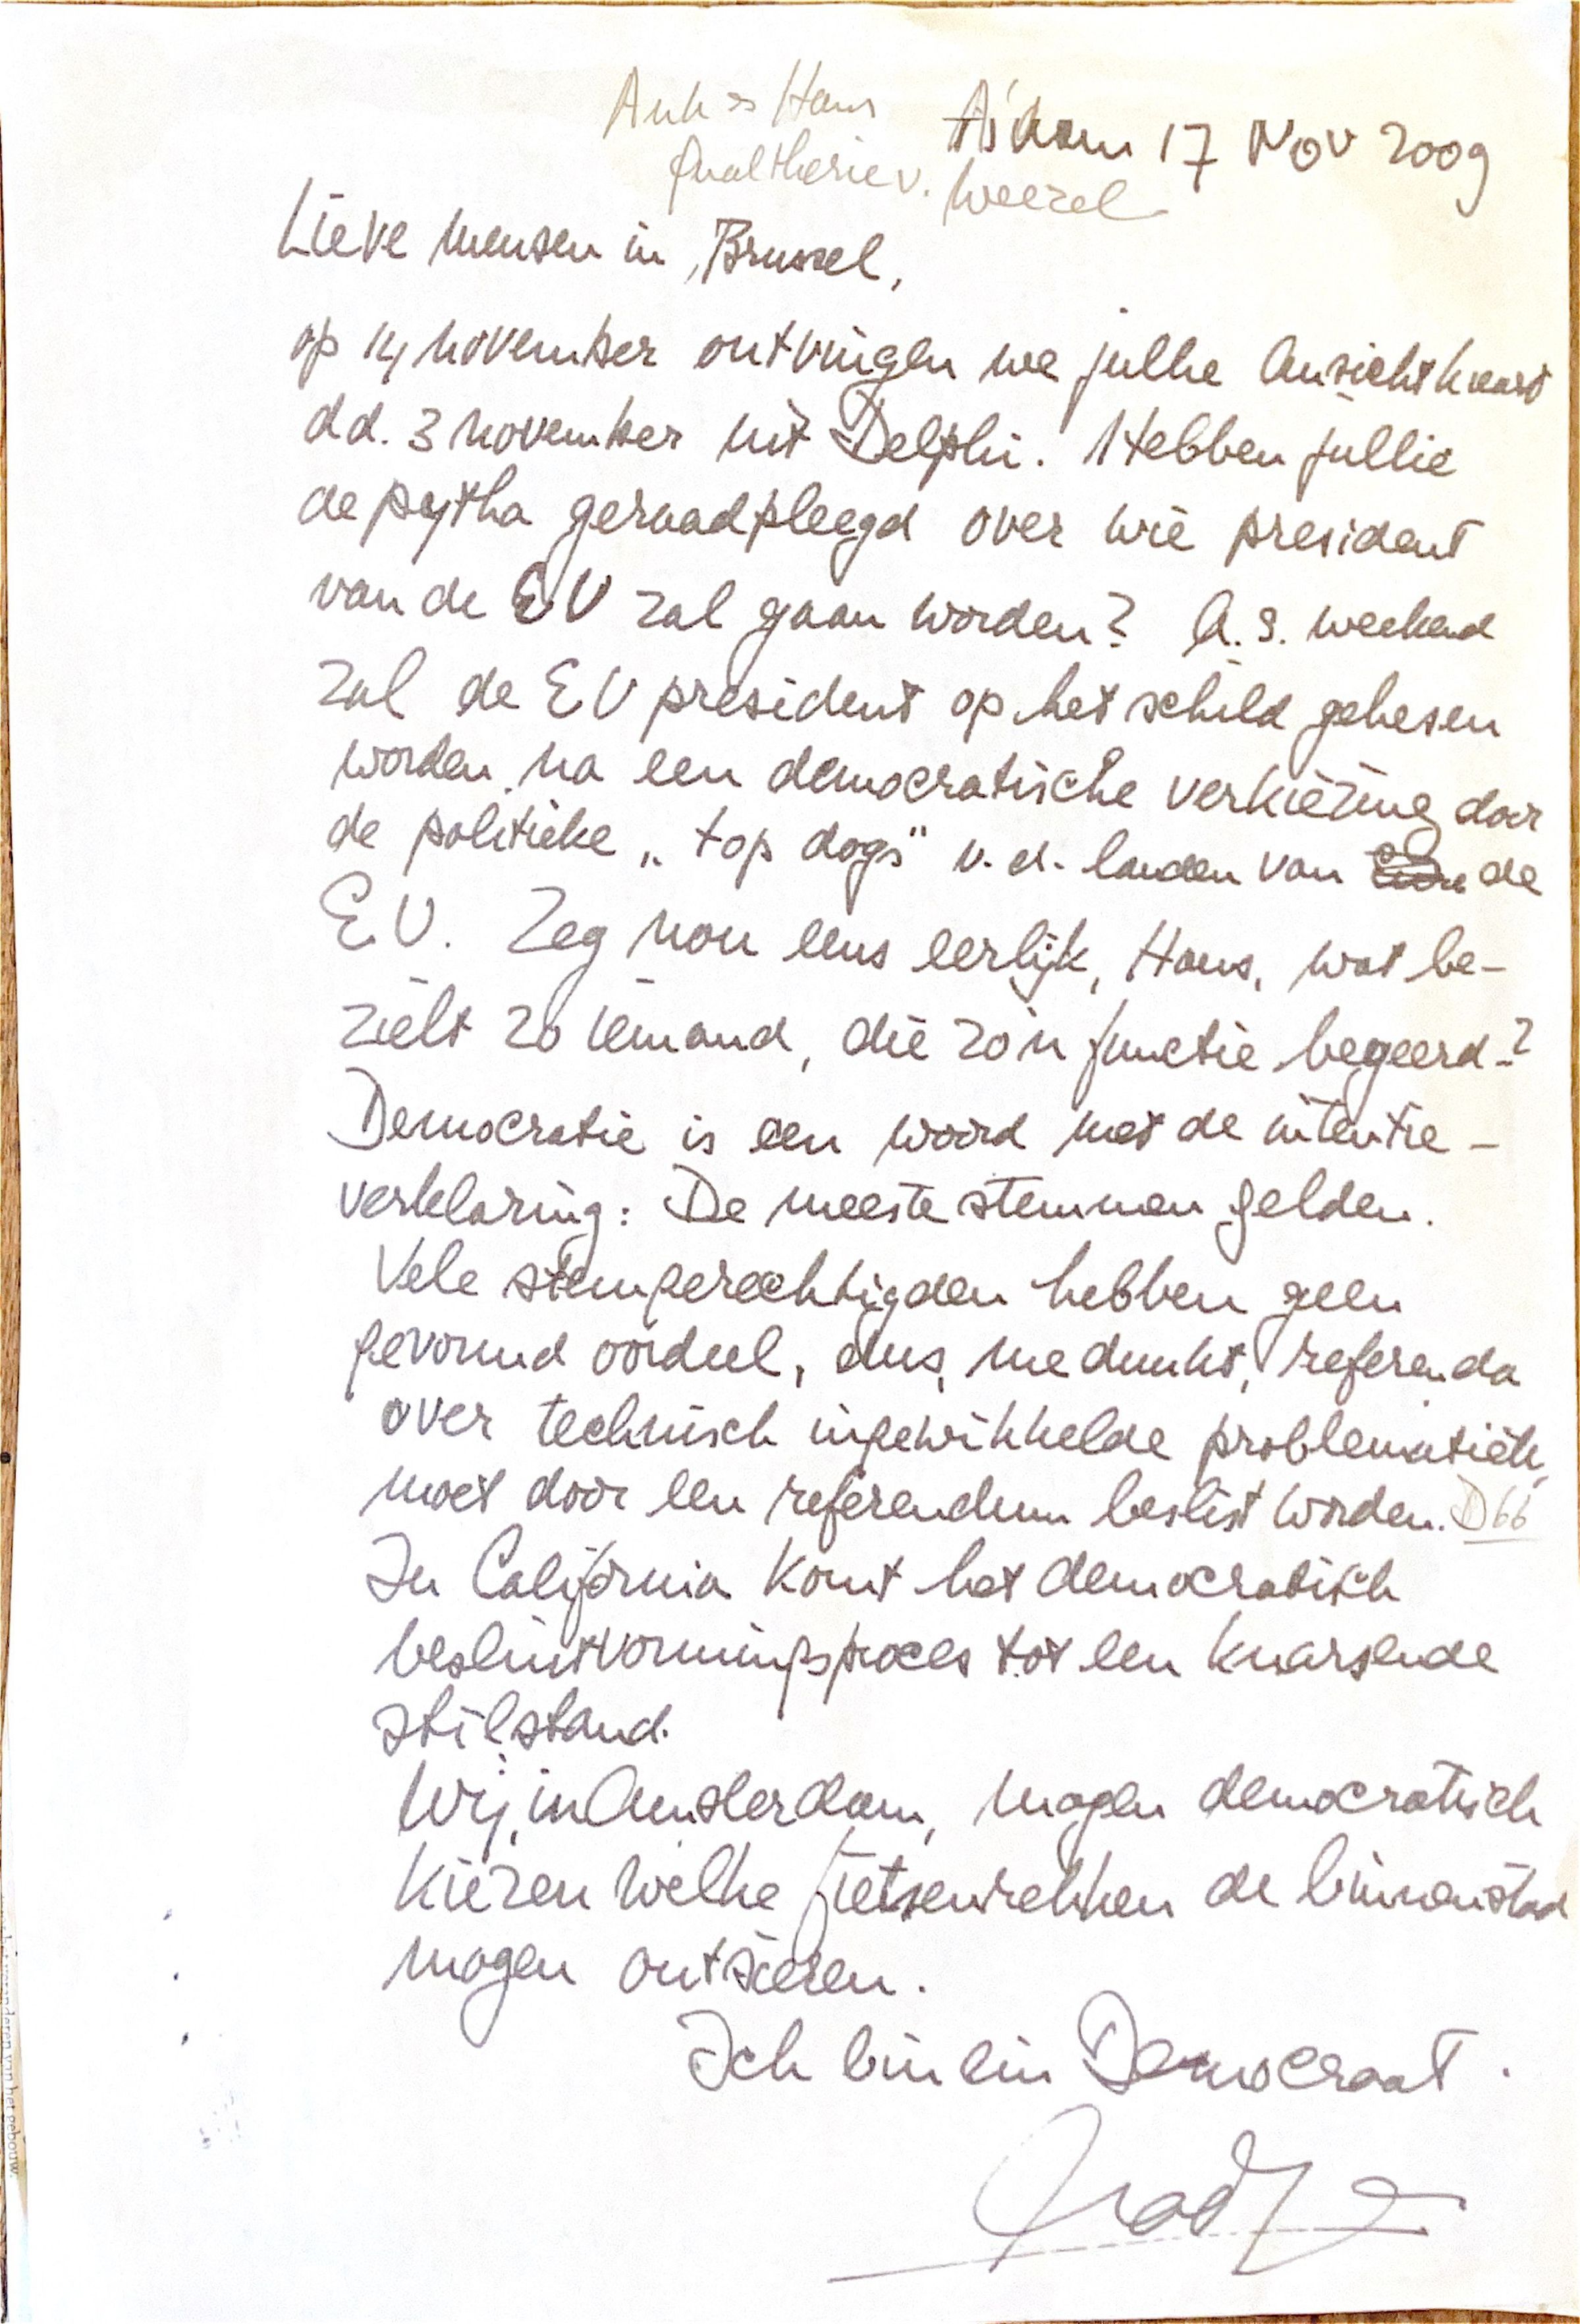 Ank en Hans
Gualtherie v. Weezel
A'dam 17 Nov 2009
Lieve mensen in Brussel,
op 14 november ontvingen we jullie ansichtkaart
dd. 3 november uit Delphi. Hebben jullie
de pytha geraadpleegd over wie president
van de EU zal gaan worden? A.s. weekend
zal de EU president op het schild gehesen
worden na een democratische verkiezing door
de politieke „top dogs" v.d. landen van de
E.U. Zeg nou eens eerlijk, Hans, wat be-
zielt zo iemand, die zo'n functie begeerd?
Democratie is een woord met de intentie-
verklaring: De meeste stemmen gelden.
Vele stemgerechtigden hebben geen
gevormd oordeel, dus, me dunkt, referenda
over technisch ingewikkelde problematiek,
moet door een referendum beslist worden. D66
In California komt het democratisch
besluitvormingsproces tot een knarsende
stilstand.
Wij, in Amsterdam, mogen democratisch
kiezen welke fietsenrekken de binnenstad
mogen ontsieren.
Ich bin ein Democraat.